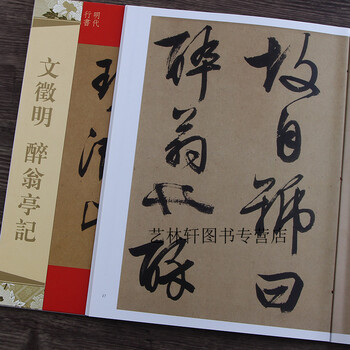 明代
行書
文徵明 醉翁亭記
故自號曰
醉翁也醉
艺林轩图书专营店